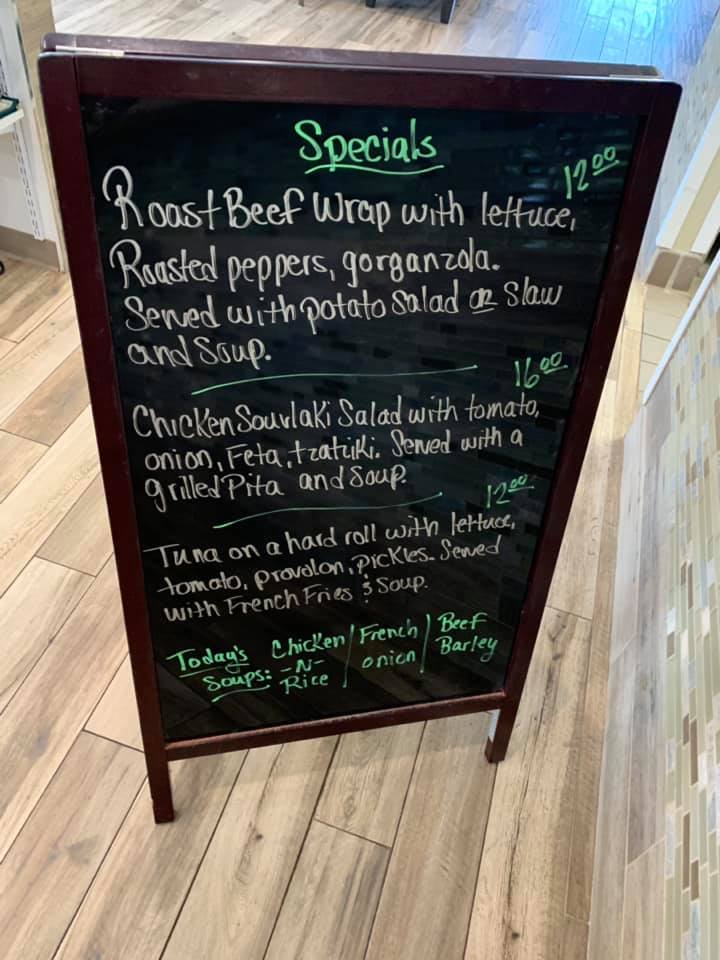 Specials
12.00
Roast Beef Wrap with lettuce,
Roasted peppers, gorganzola.
Served with potato Salad or Slaw
and Soup.
16.00
Chicken Souvlaki Salad with tomato,
onion, Feta, tzatziki. Served with a
grilled Pita and Soup.
12.00
Tuna on a hard roll with lettuce,
tomato, provolon, pickles. Served
with French Fries & Soup.
Today's Soups: Chicken -N- Rice / French onion / Beef Barley